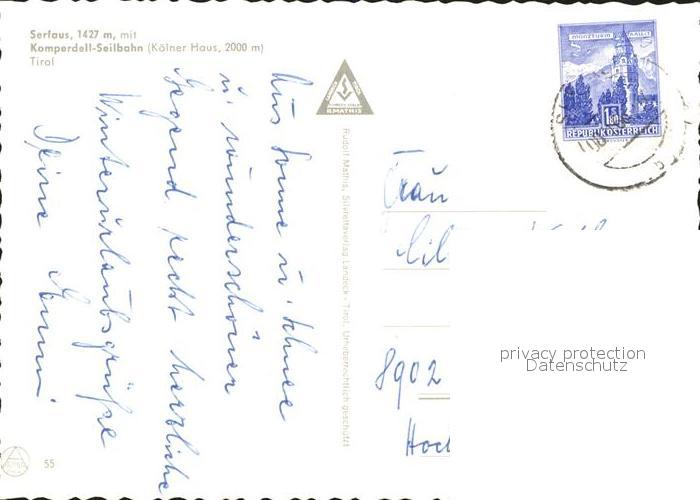 Serfaus, 1427 m, mit
Komperdell-Seilbahn (Kölner Haus, 2000 m)
Tirol
Aus Sonne u. Schnee
u. wunderschöner
Gegend recht herzliche
Winterurlaubsgrüße
Deine
R.MATHIS
Rudolf Mathis, Silvrettaverlag Landeck - Tirol. Urheberrechtlich geschützt
MÜNZTURM HALL i. T.
S 1.80
REPUBLIK ÖSTERREICH
Frau
8902
privacy protection
Datenschutz
55